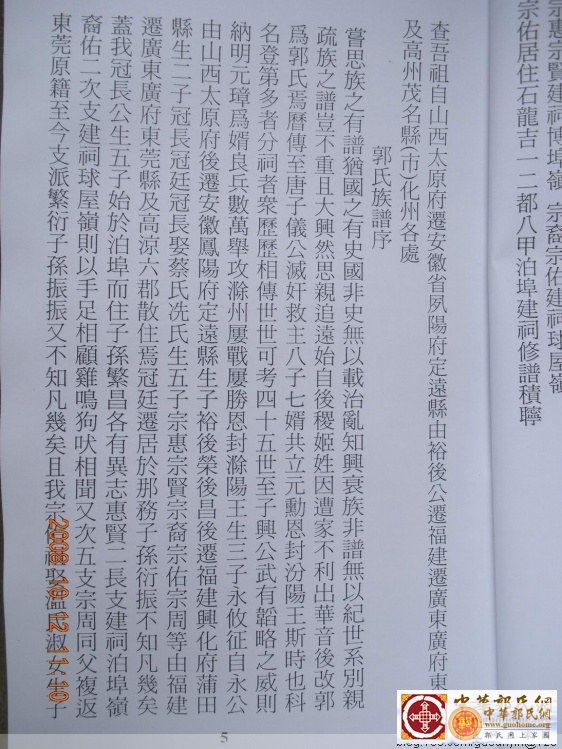 宗惠宗賢建祠博埠嶺 宗裔宗佑建祠球屋嶺
宗佑居住石龍吉一二都八甲泊埠建祠修譜積聹
查吾祖自山西太原府遷安徽省夙陽府定遠縣由裕後公遷福建遷廣東廣府東
及高州茂名縣(市)化州各處
郭氏族譜序
嘗思族之有譜猶國之有史國非史無以載治亂知興衰族非譜無以紀世系別親
疏族之譜豈不重且大興然思親追遠始自後稷姬姓因遭家不利出華音後改郭
爲郭氏焉曆傳至唐子儀公滅奸救主八子七婿共立元勳恩封汾陽王斯時也科
名登第多者分祠者衆歷歷相傳世世可考四十五世至子興公武有韜略之威則
納明元璋爲婿良兵數萬舉攻滁州屢戰屢勝恩封滁陽王生三子永攸征自永公
由山西太原府後遷安徽鳳陽府定遠縣生子裕後榮後昌後遷福建興化府蒲田
縣生二子冠長冠廷冠長娶蔡氏冼氏生五子宗惠宗賢宗裔宗佑宗周等由福建
遷廣東廣府東莞縣及高涼六郡散住焉冠廷遷居於那務子孫衍振不知凡幾矣
蓋我冠長公生五子始於泊埠而住子孫繁昌各有異志惠賢二長支建祠泊埠嶺
裔佑二次支建祠球屋嶺則以手足相顧雞鳴狗吠相聞又次五支宗周同父複返
東莞原籍至今支派繁衍子孫振振又不知凡幾矣且我宗
淑女生
子
2008 10 12 11:10
5
中華郭氏網
中華郭氏網
www.guoshi.com
郭氏网上家園